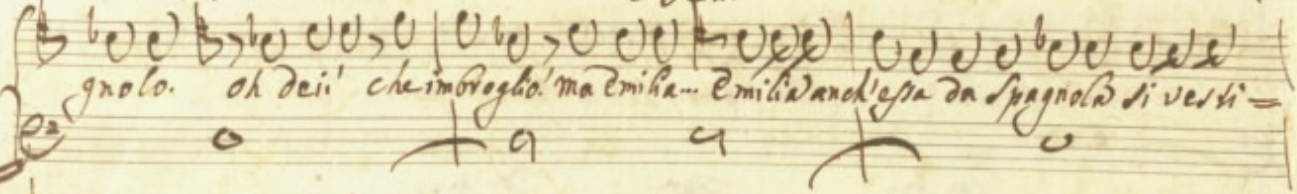 gnolo. oh dei! che imbroglio! ma Emilia... Emilia anch'essa da Spagnola si vesti=